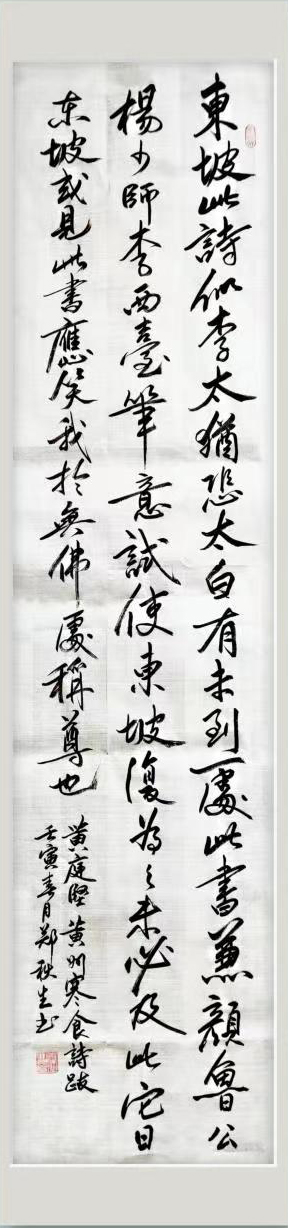 東坡此詩似李太猶恐太白有未到處此書兼顏魯公
楊少師李西臺筆意誠使東坡復為之未必及此它日
东坡或見此書應笑我於無佛處稱尊也
黃庭堅黃州寒食詩跋
壬寅春月鄭秋生书